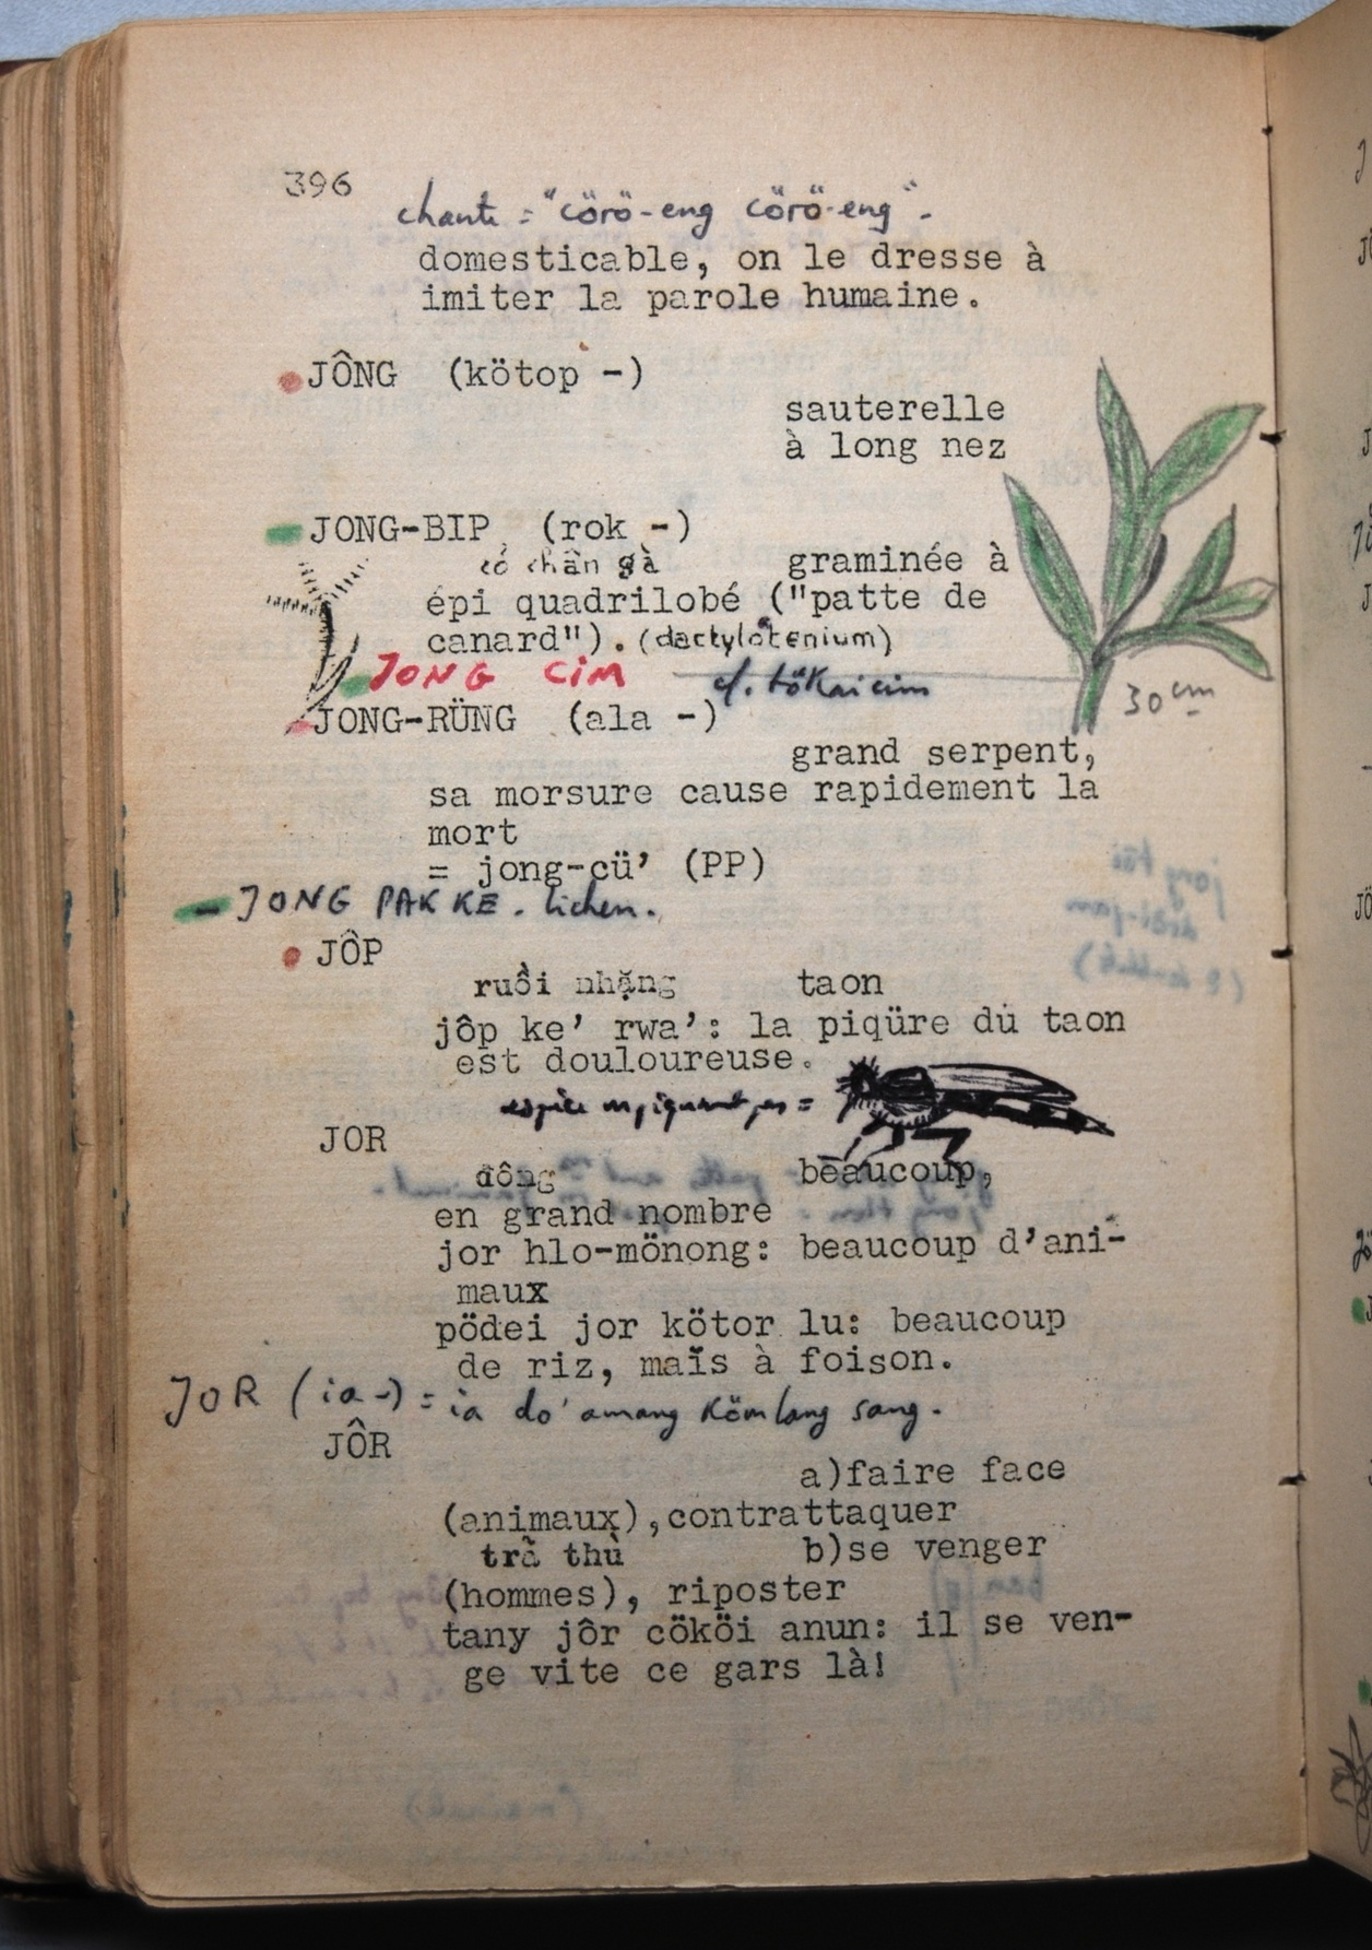 396
chante = "cörö-eng cörö-eng".
domesticable, on le dresse à
imiter la parole humaine.
JÔNG (kötop -)
sauterelle
à long nez
JONG-BIP (rok -)
cỏ chân gà graminée à
épi quadrilobé ("patte de
canard"). (dactyloctenium)
JONG CIM cf. tökai cim
30 cm
JONG-RÜNG (ala -)
grand serpent,
sa morsure cause rapidement la
mort
= jong-cü' (PP)
JONG PAK KE. lichen.
JÔP
ruồi nhặng taon
jôp ke' rwa': la piqüre du taon
est douloureuse.
espèce ne piquant pas =
JOR
đông beaucoup,
en grand nombre
jor hlo-mönong: beaucoup d'ani-
maux
pödei jor kötor lu: beaucoup
de riz, maïs à foison.
JOR (ia -) = ia do' amang kömlang sang.
JÔR
a)faire face
(animaux),contrattaquer
trả thù b)se venger
(hommes), riposter
tany jôr cököi anun: il se ven-
ge vite ce gars là!